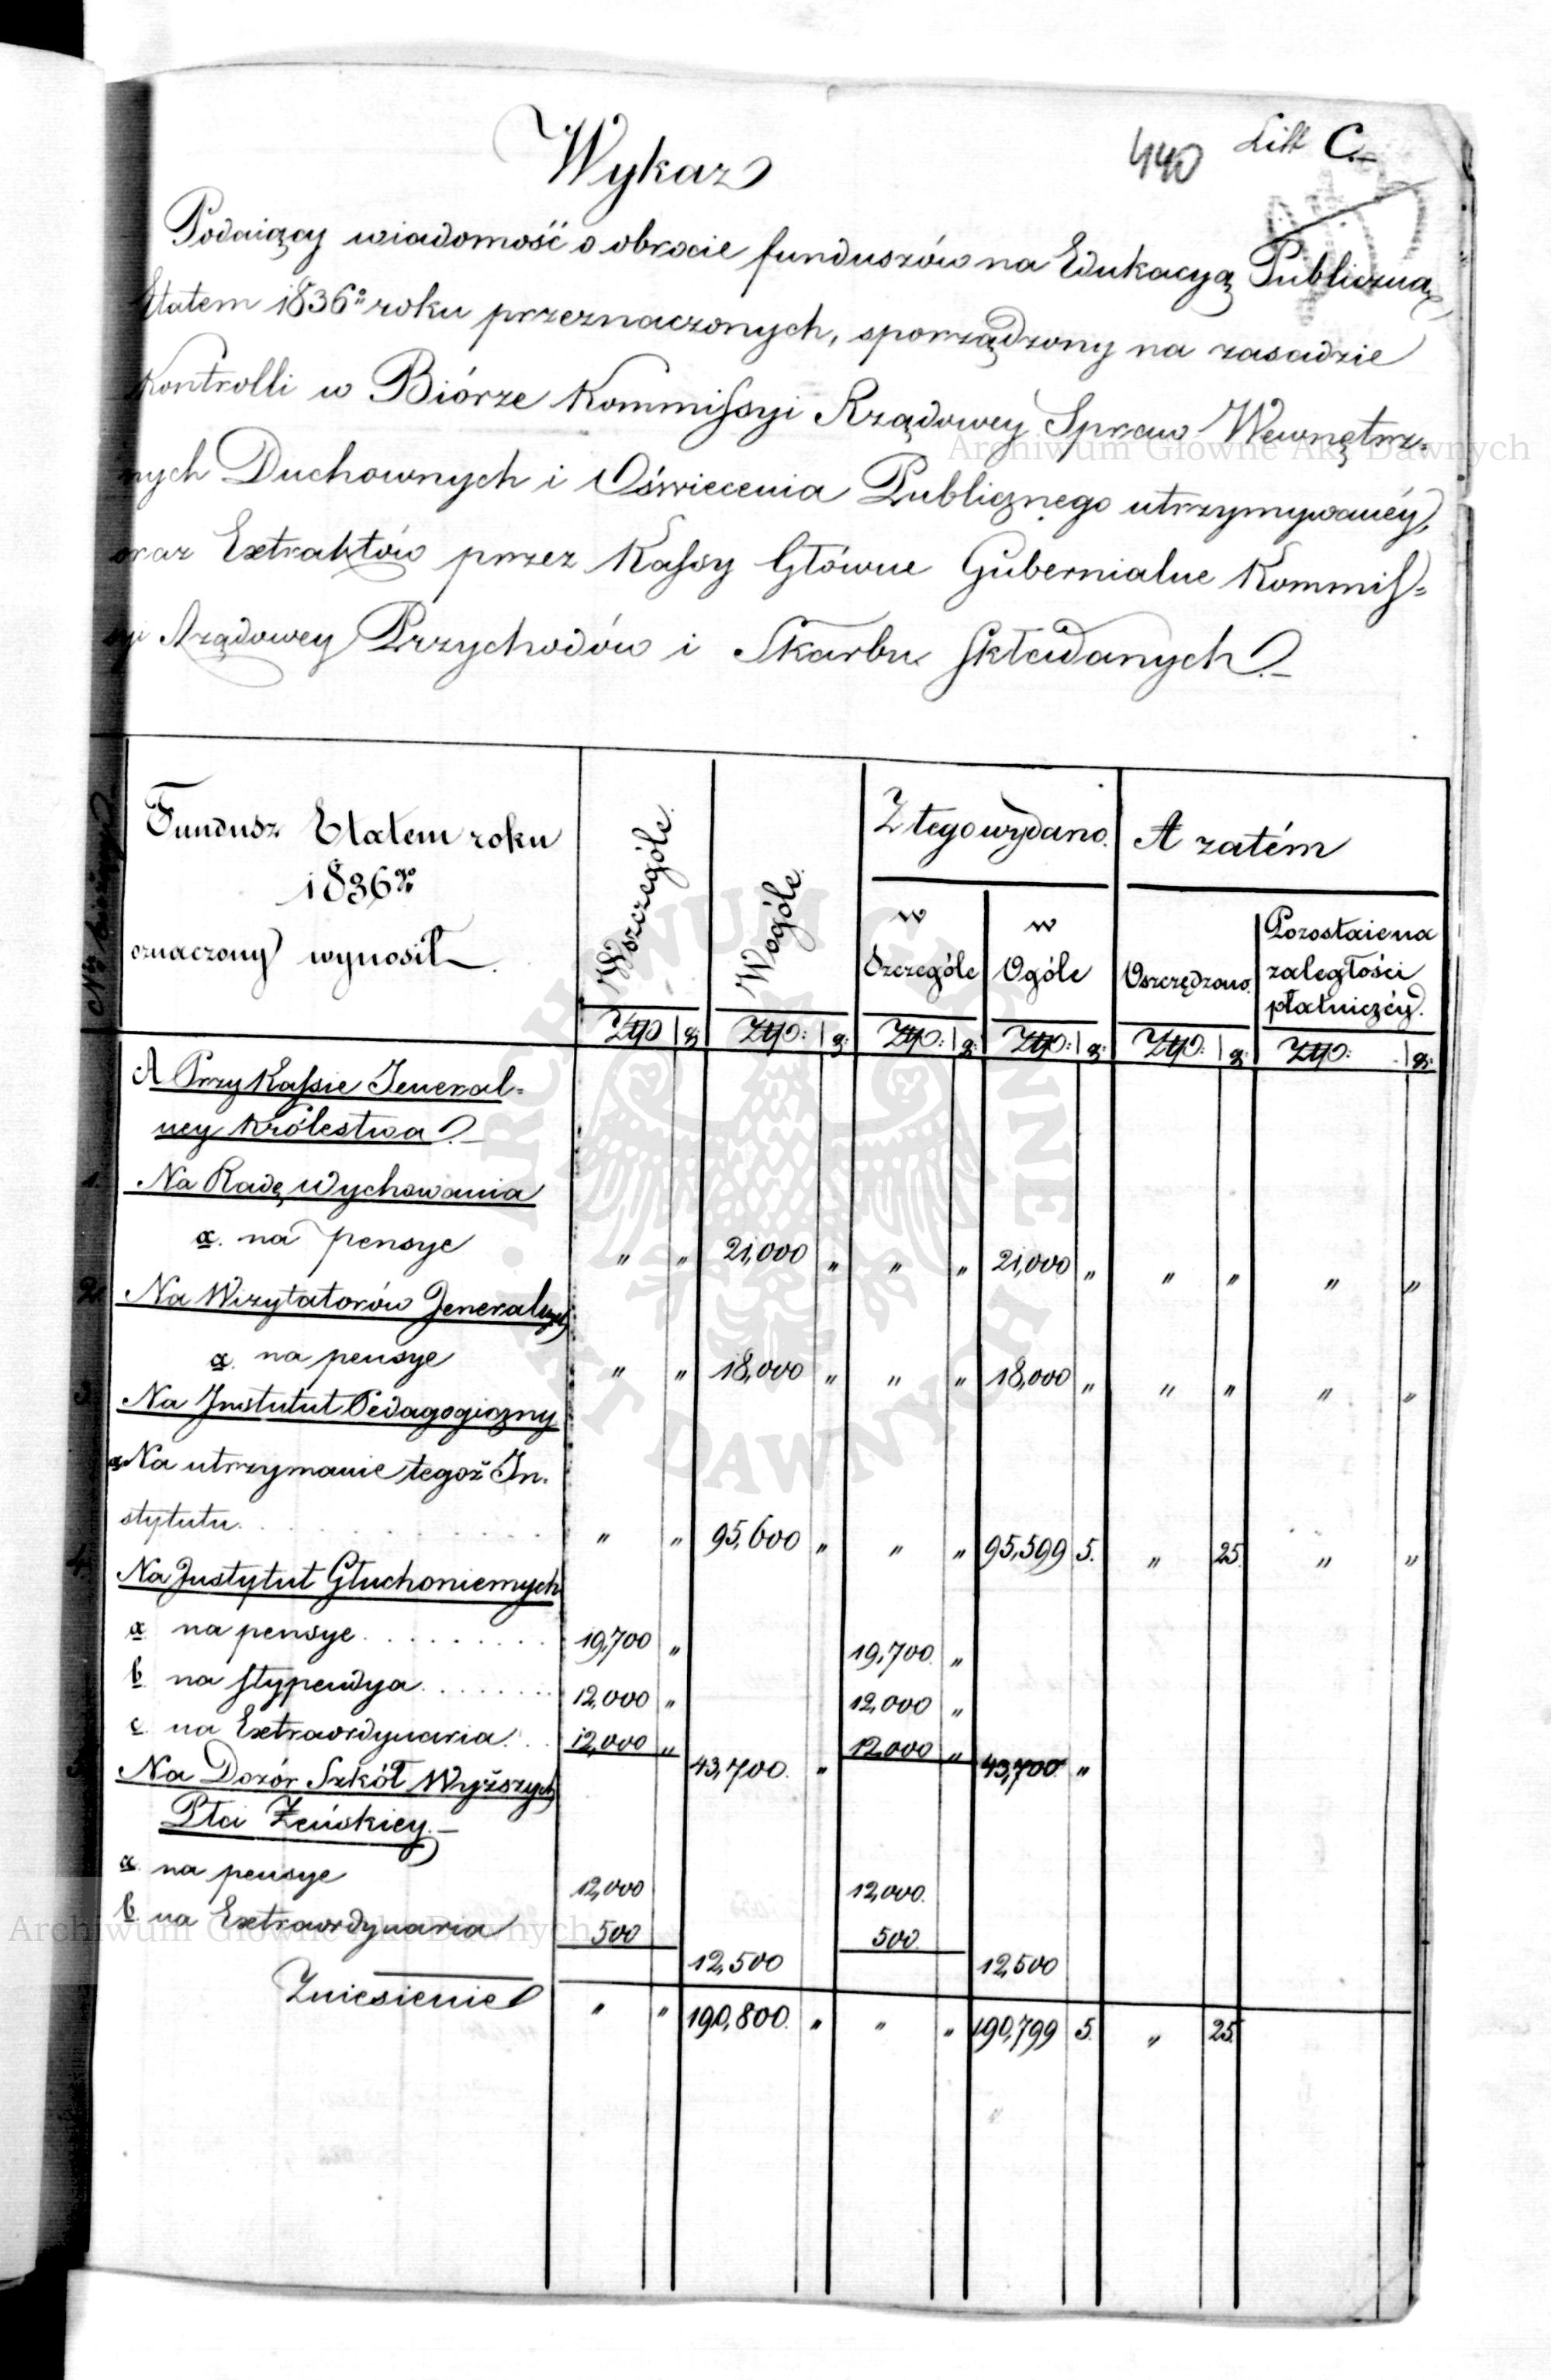 440 Litt C.
Wykaz
Podaiący wiadomość o obrocie funduszów na Edukacyą Publiczną
Etatem 1836º roku przeznaczonych, sporządzony na zasadzie
Kontrolli w Biórze Kommissyi Rządowey Spraw Wewnętrz-
nych Duchownych i Oświecenia Publicznego utrzymywanéy,
oraz Extraktów przez Kassy Główne Gubernialne Kommis-
syi Rządowey Przychodów i Skarbu składanych.
Nr bieżący
Fundusz Etatem roku
1836go
oznaczony wynosił
Wszczególe.
Wogóle.
Z tego wydano.
A zatém
w Szczególe
w Ogóle
Oszczędzono.
Pozostaie na
zaległości
płatniczéy.
Złp g: Złp: g: Złp: g: Złp: g: Złp: g: Złp: gr:
A Przy Kassie Jeneral-
ney Królestwa.
1. Na Radę Wychowania
a. na pensye " " 21,000 " " " 21,000 " " " " "
2. Na Wizytatorów Jeneralnych
a. na pensye " " 18,000 " " " 18,000 " " " " "
3. Na Instutut Pedagogiczny
a. Na utrzymanie tegoż In-
stytutu. " " 95,600 " " " 95,599 5. " 25. " "
4. Na Instytut Głuchoniemych
a. na pensye 19,700 " 19,700. "
b. na stypendya 12,000 " 12,000 "
c. na Extraordynaria 12,000 " 43,700. " 12,000 " 43,700. "
5. Na Dozór Szkół Wyższych
Płci Żeńskiey.
a. na pensye 12,000 12,000.
b. na Extraordynaria 500 12,500 500. 12,500
Zniesienie " " 190,800. " " " 190,799 5. " 25.
Archiwum Główne Akt Dawnych
Archiwum Główne Akt Dawnych
ARCHIWUM GŁÓWNE · AKT DAWNYCH ·